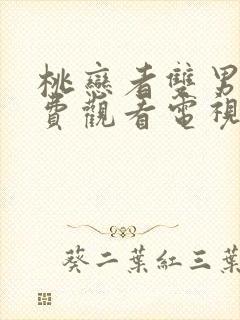 桃戀者雙男
費觀看電視
葵二葉紅三葉